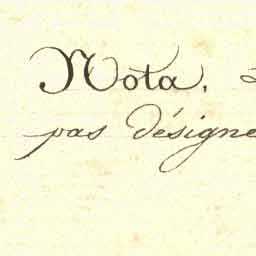 Nota.
pas désigne